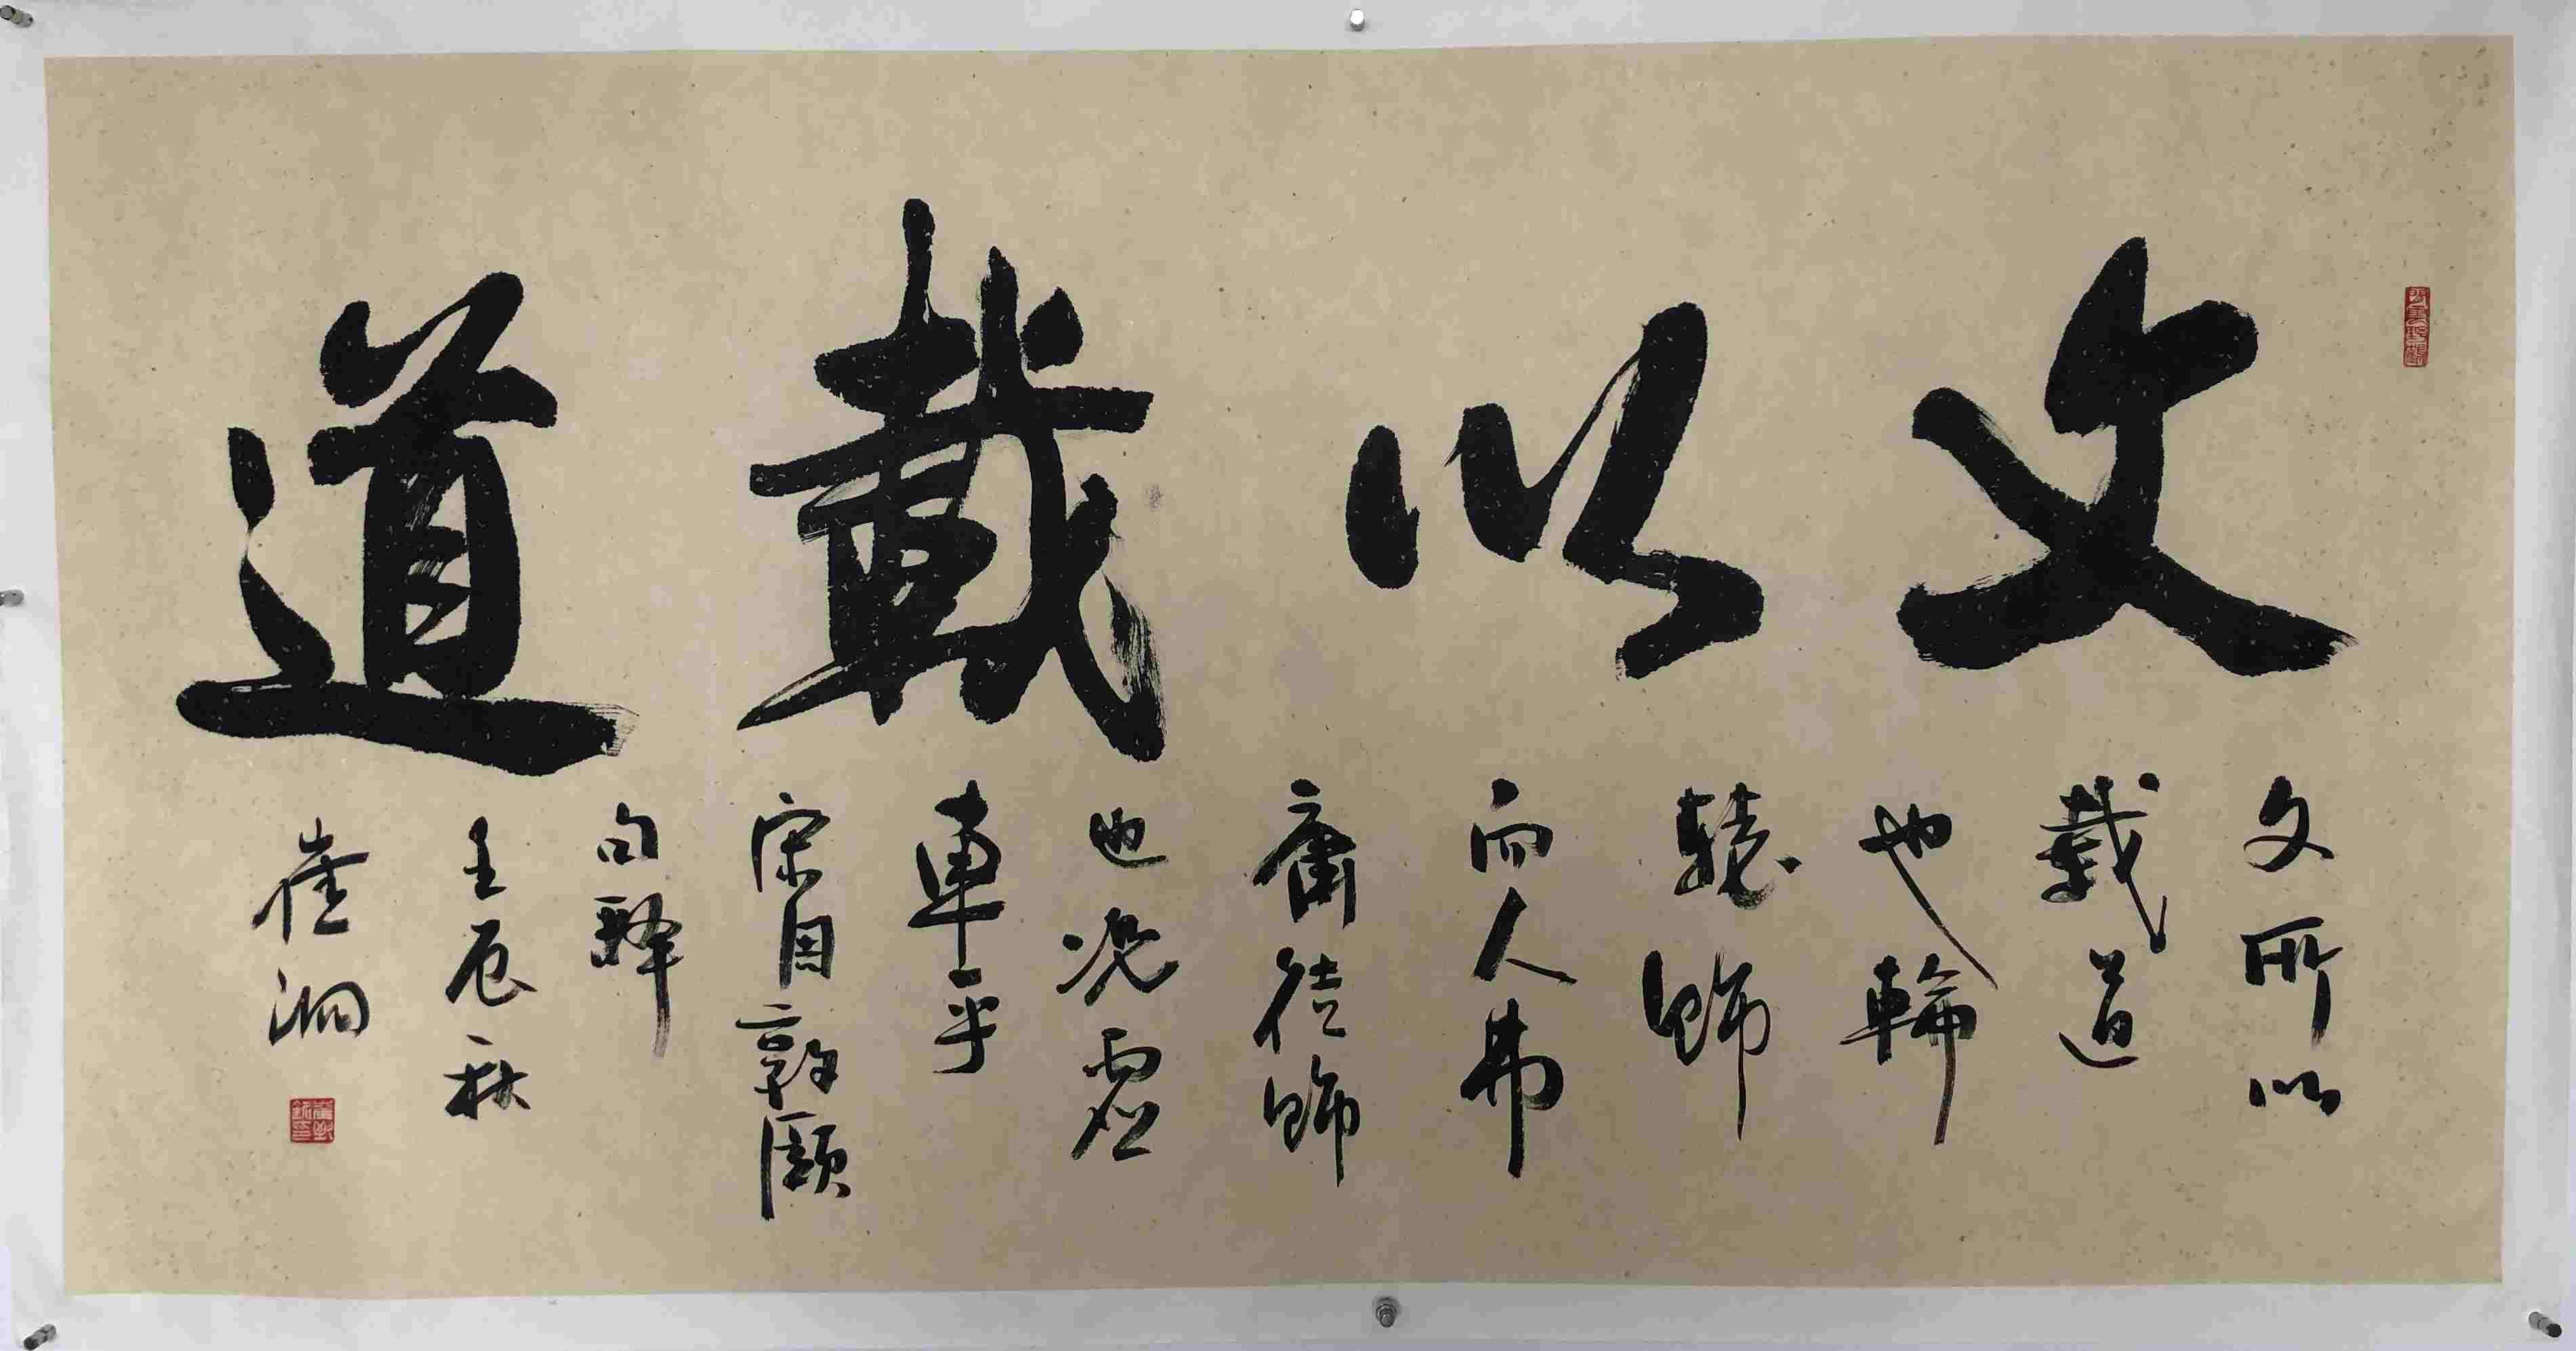 文以載道
文所以
載道
也輪
轅飾
而人弗
庸徒飾
也况虛
車乎
宋周敦頤
句釋
壬辰秋
崔